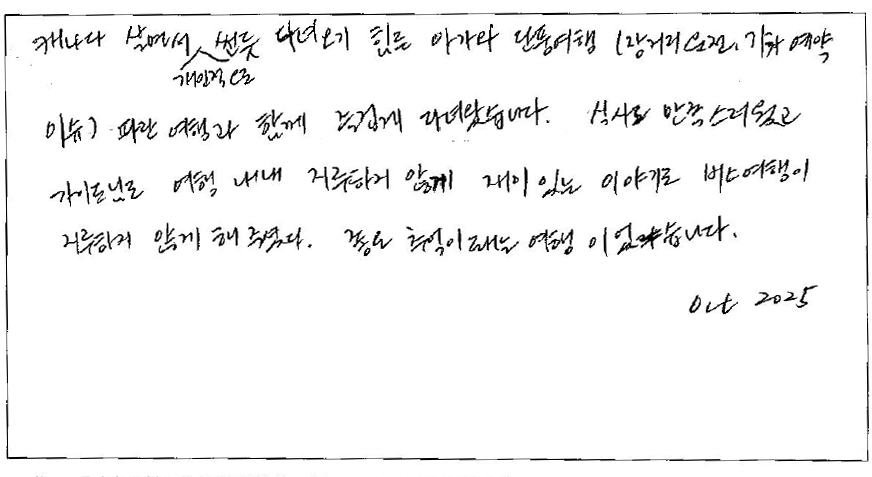 캐나다 살면서 개인적으로 썬듯 다녀오기 힘든 아가와 단풍여행 (장거리 운전, 기차 예약
이슈) 파란 여행과 함께 즐겁게 다녀왔습니다. 식사도 만족스러웠고
가이드님도 여행 내내 지루하지 않게 재미있는 이야기로 버스여행이
지루하지 않게 해 주셨다. 좋은 추억이 되는 여행 이었습니다.
Oct 2025